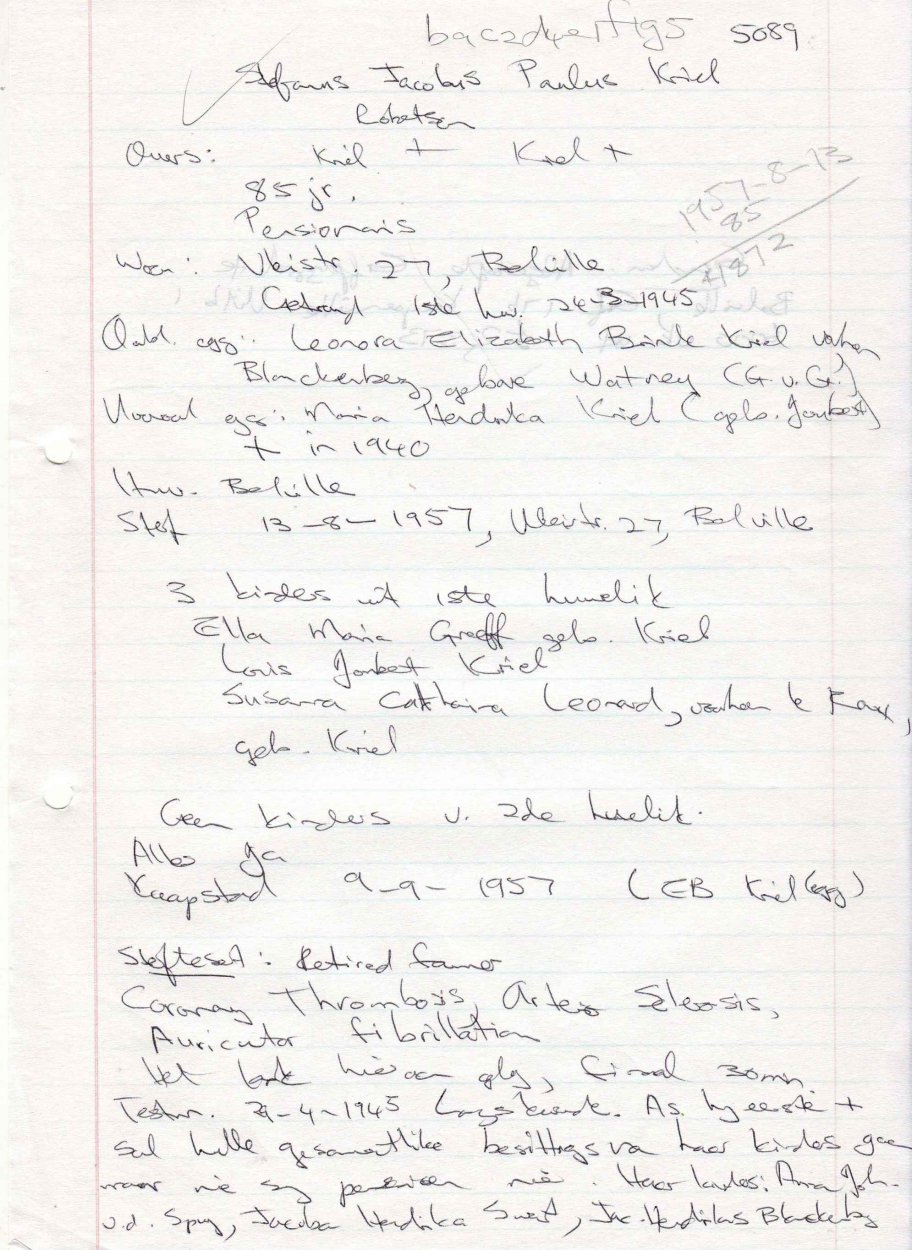 bac2d4erf1g5 5089
Stefanus Jacobus Paulus Kriel
Robertson
Ouers: Kriel + Kriel +
85 jr.
Pensionaris
1957-8-13
85
1872
Woon: Vleistr. 27, Bellville
Getroud 1ste huw. 24-3-1945
Oorl. egg.: Leonora Elizabeth Brink Kriel vorheen
Blanckenberg, gebore Watney (G.v.G.)
Vooroorl egg.: Maria Hendrika Kriel (geb. Joubert)
+ in 1940
Huw. Bellville
Sterf 13-8-1957, Vleistr. 27, Bellville
3 kinders uit 1ste huwelik
Ella Maria Graeff geb. Kriel
Louis Joubert Kriel
Susanna Catharina Leonard, voorheen le Roux,
geb. Kriel
Geen kinders v. 2de huwelik.
Albei ja
Kaapstad 9-9-1957 (EB Kriel (egg)
Sterftesert: Retired farmer
Coronary Thrombosis, Arterio Sclerosis,
Auricular fibrillation
Het lank hieraan gely, finaal 30 min.
Testm. 21-4-1945 As hy eerste +
sal hulle gesamentlike besittings na haar kinders gaan
maar nie sy pensioen nie. Haar kinders: Anna Joh.
v.d. Spuy, Jacoba Hendrika Swart, Jac. Hendrikus Blanckenberg